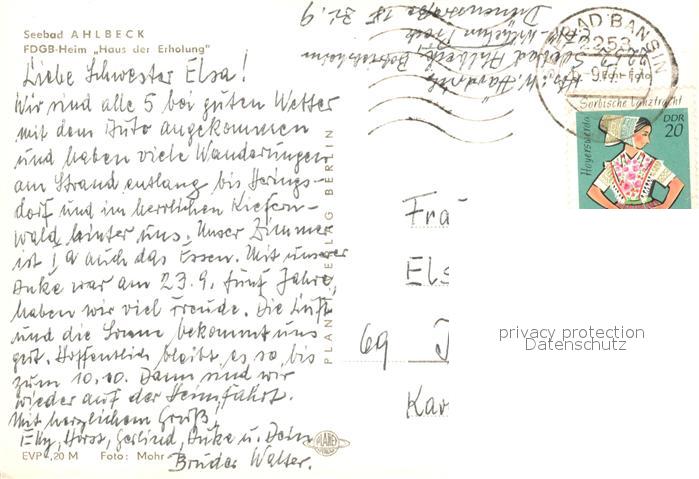 Seebad AHLBECK
FDGB-Heim „Haus der Erholung"
Liebe Schwester Elsa!
Wir sind alle 5 bei guten Wetter
mit dem Auto angekommen
und haben viele Wanderungen
am Strand entlang bis Herings-
dorf und im herrlichen Kiefern-
wald hinter uns. Unser Zimmer
ist 1a auch das Essen. Mit unserer
Anke war am 23.9. fünf Jahre,
haben wir viel Freude. Die Luft
und die Sonne bekommt uns
gut. Hoffentlich bleibt es so, bis
zum 10.10. Dann sind wir
wieder auf der Heimfahrt.
Mit herzlichem Gruß,
Elly, Horst, Gerlind, Anke u. Dein
Bruder Walter.
EVP -,20 M Foto: Mohr
PLANET-VERLAG BERLIN
PLANET
Seebad Ahlbeck
SEEBAD BANSIN
2253
Sorbische Tanztracht
Hoyerswerda
DDR
20
Frau
Els
69
Kar
privacy protection
Datenschutz